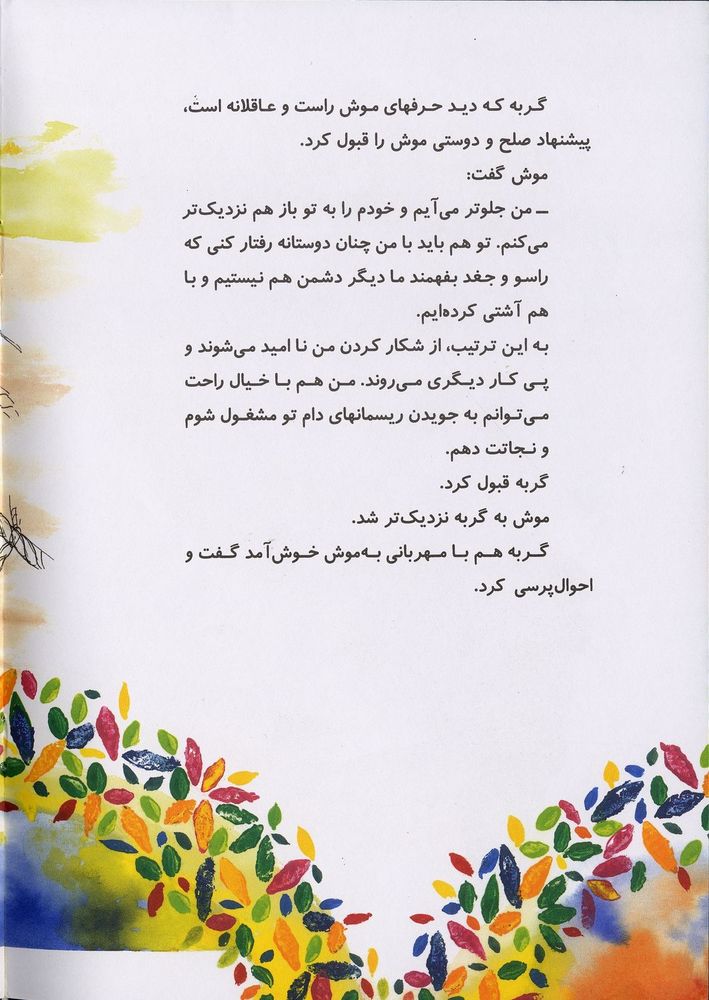 گربه که دید حرفهای موش راست و عاقلانه است،
پیشنهاد صلح و دوستی موش را قبول کرد.
موش گفت:
ــ من جلوتر می‌آیم و خودم را به تو باز هم نزدیک‌تر
می‌کنم. تو هم باید با من چنان دوستانه رفتار کنی که
راسو و جغد بفهمند ما دیگر دشمن هم نیستیم و با
هم آشتی کرده‌ایم.
به این ترتیب، از شکار کردن من نا امید می‌شوند و
پی کار دیگری می‌روند. من هم با خیال راحت
می‌توانم به جویدن ریسمانهای دام تو مشغول شوم
و نجاتت دهم.
گربه قبول کرد.
موش به گربه نزدیک‌تر شد.
گربه هم با مهربانی به‌موش خوش‌آمد گفت و
احوال‌پرسی کرد.